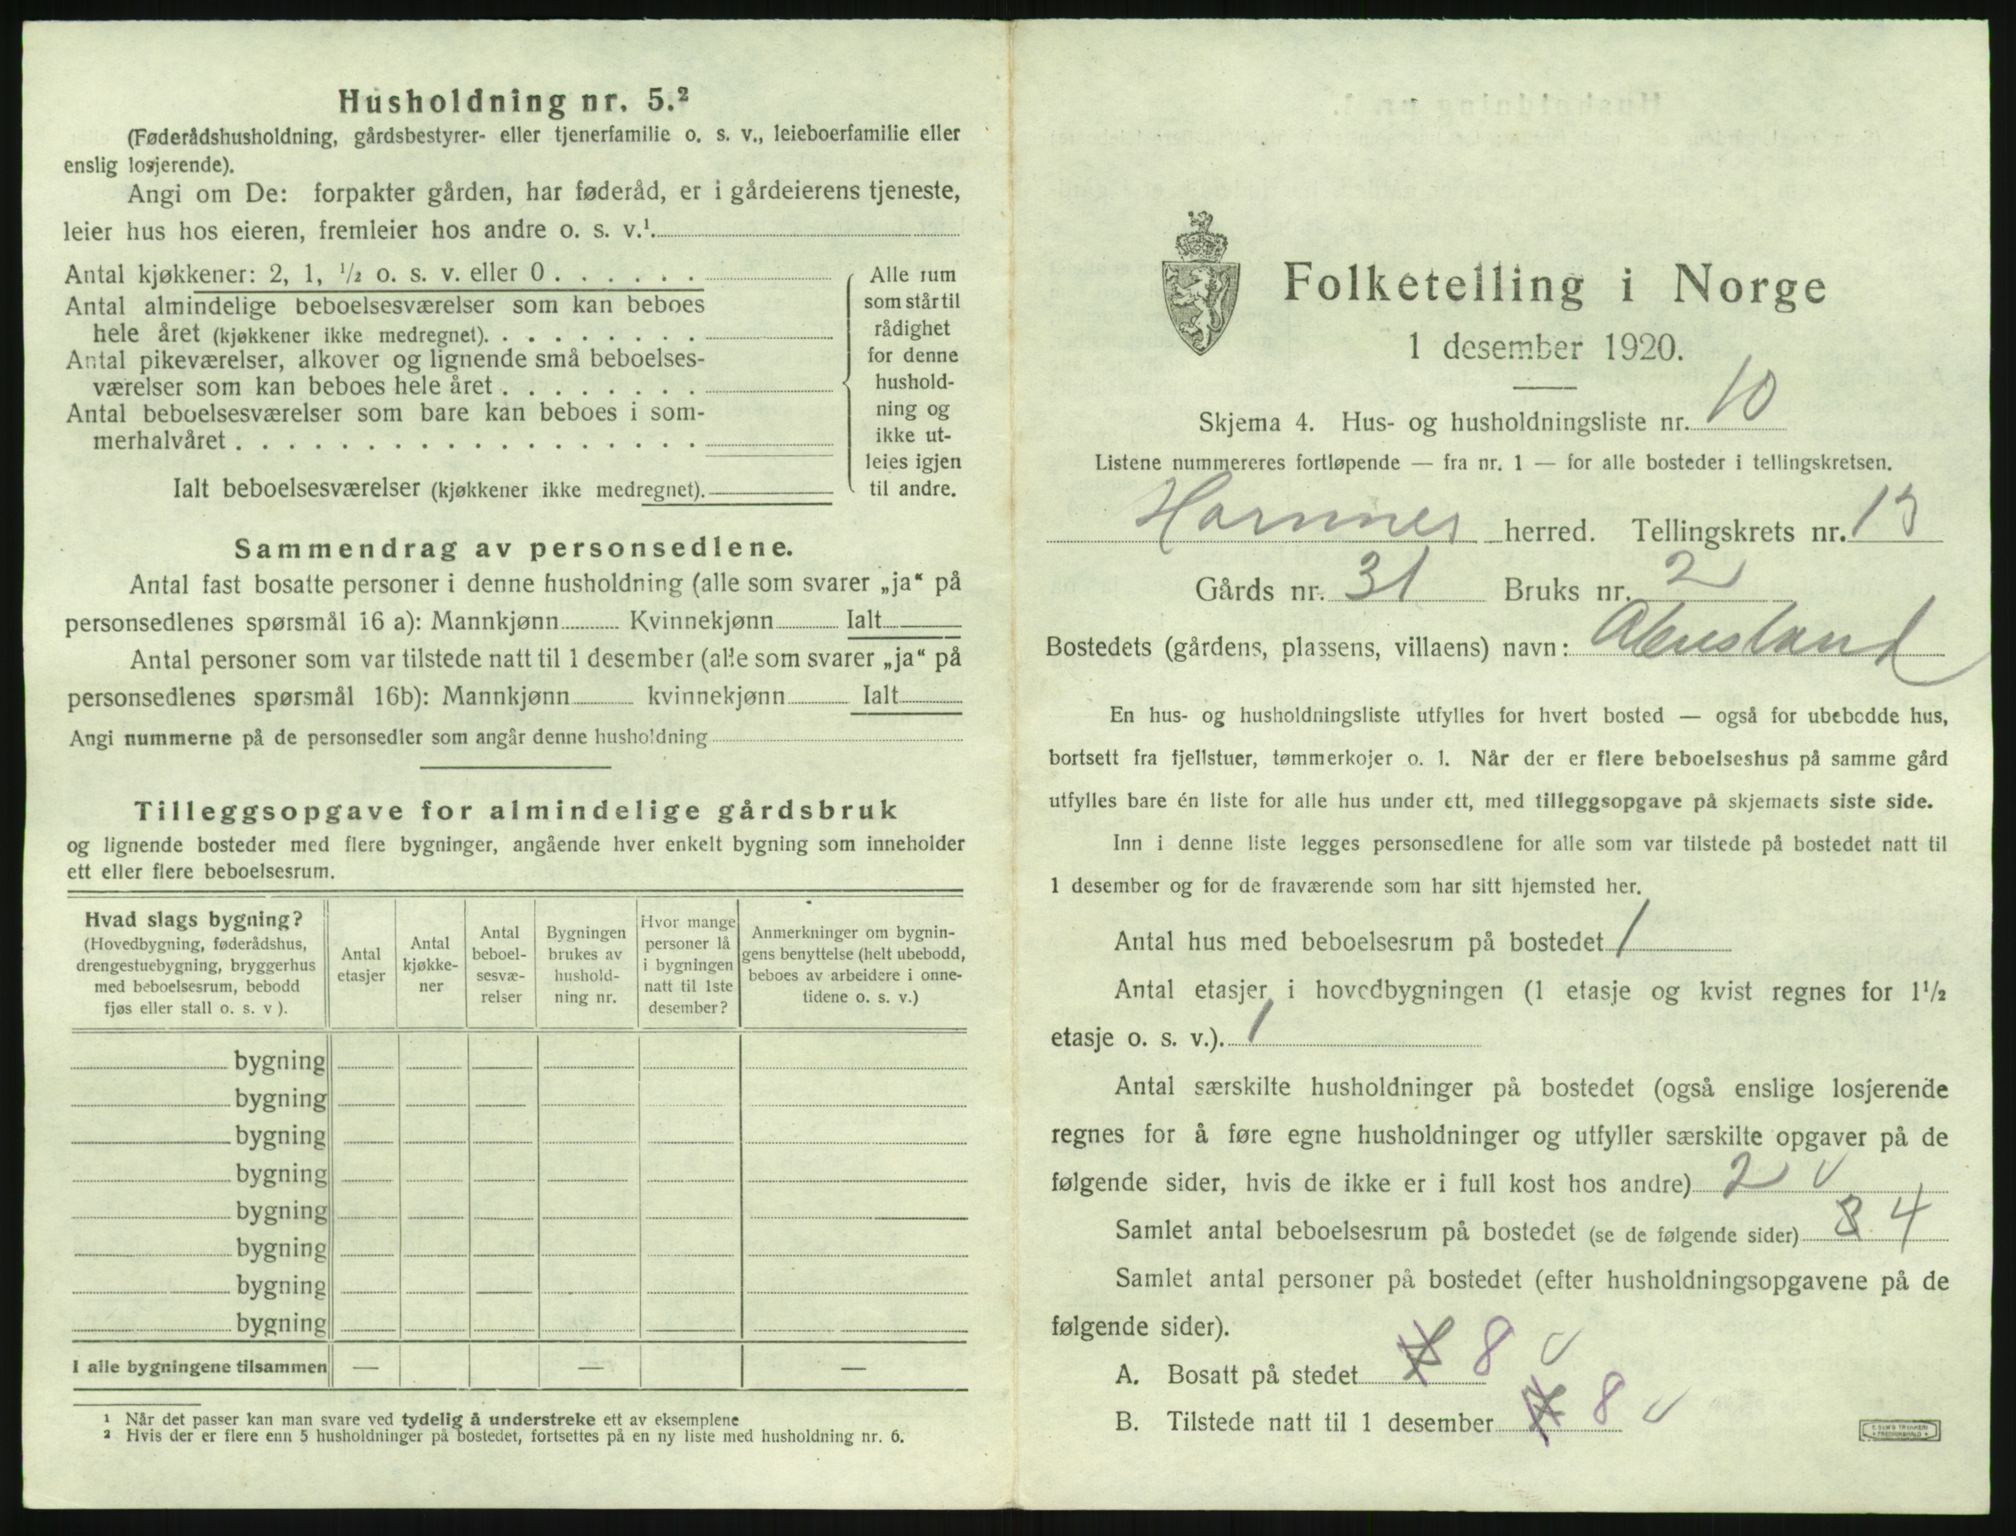 Husholdning nr. 5.²
(Føderådshusholdning, gårdsbestyrer- eller tjenerfamilie o. s. v., leieboerfamilie eller
enslig losjerende).
Angi om De: forpakter gården, har føderåd, er i gårdeierens tjeneste,
leier hus hos eieren, fremleier hos andre o. s. v.¹
Antal kjøkkener: 2, 1, ½ o. s. v. eller 0
Antal almindelige beboelsesværelser som kan beboes
hele året (kjøkkener ikke medregnet).
Antal pikeværelser, alkover og lignende små beboelses-
værelser som kan beboes hele året
Antal beboelsesværelser som bare kan beboes i som-
merhalvåret
Ialt beboelsesværelser (kjøkkener ikke medregnet).
Alle rum
som står til
rådighet
for denne
hushold-
ning og
ikke ut-
leies igjen
til andre.
Sammendrag av personsedlene.
Antal fast bosatte personer i denne husholdning (alle som svarer „ja“ på
personsedlenes spørsmål 16 a): Mannkjønn Kvinnekjønn Ialt
Antal personer som var tilstede natt til 1 desember (alle som svarer „ja“ på
personsedlenes spørsmål 16b): Mannkjønn kvinnekjønn Ialt
Angi nummerne på de personsedler som angår denne husholdning
Tilleggsopgave for almindelige gårdsbruk
og lignende bosteder med flere bygninger, angående hver enkelt bygning som inneholder
ett eller flere beboelsesrum.
Hvad slags bygning?
(Hovedbygning, føderådshus,
drengestuebygning, bryggerhus
med beboelsesrum, bebodd
fjøs eller stall o. s. v ).
Antal
etasjer
Antal
kjøkke-
ner
Antal
beboel-
sesvæ-
relser
Bygningen
brukes av
hushold-
ning nr.
Hvor mange
personer lå
i bygningen
natt til 1ste
desember?
Anmerkninger om bygnin-
gens benyttelse (helt ubebodd,
beboes av arbeidere i onne-
tidene o. s. v.)
bygning
bygning
bygning
bygning
bygning
bygning
bygning
bygning
I alle bygningene tilsammen — — —
¹ Når det passer kan man svare ved tydelig å understreke ett av eksemplene
² Hvis der er flere enn 5 husholdninger på bostedet, fortsettes på en ny liste med husholdning nr. 6.
Folketelling i Norge
1 desember 1920.
Skjema 4. Hus- og husholdningsliste nr. 10
Listene nummereres fortløpende — fra nr. 1 — for alle bosteder i tellingskretsen.
Hornnes herred. Tellingskrets nr. 13
Gårds nr. 31 Bruks nr. 2
Bostedets (gårdens, plassens, villaens) navn: Abusland
En hus- og husholdningsliste utfylles for hvert bosted — også for ubebodde hus,
bortsett fra fjellstuer, tømmerkojer o. l. Når der er flere beboelseshus på samme gård
utfylles bare én liste for alle hus under ett, med tilleggsopgave på skjemaets siste side.
Inn i denne liste legges personsedlene for alle som var tilstede på bostedet natt til
1 desember og for de fraværende som har sitt hjemsted her.
Antal hus med beboelsesrum på bostedet 1
Antal etasjer i hovedbygningen (1 etasje og kvist regnes for 1½
etasje o. s. v.). 1
Antal særskilte husholdninger på bostedet (også enslige losjerende
regnes for å føre egne husholdninger og utfyller særskilte opgaver på de
følgende sider, hvis de ikke er i full kost hos andre) 2
Samlet antal beboelsesrum på bostedet (se de følgende sider) 4
Samlet antal personer på bostedet (efter husholdningsopgavene på de
følgende sider).
A. Bosatt på stedet 8
B. Tilstede natt til 1 desember 8